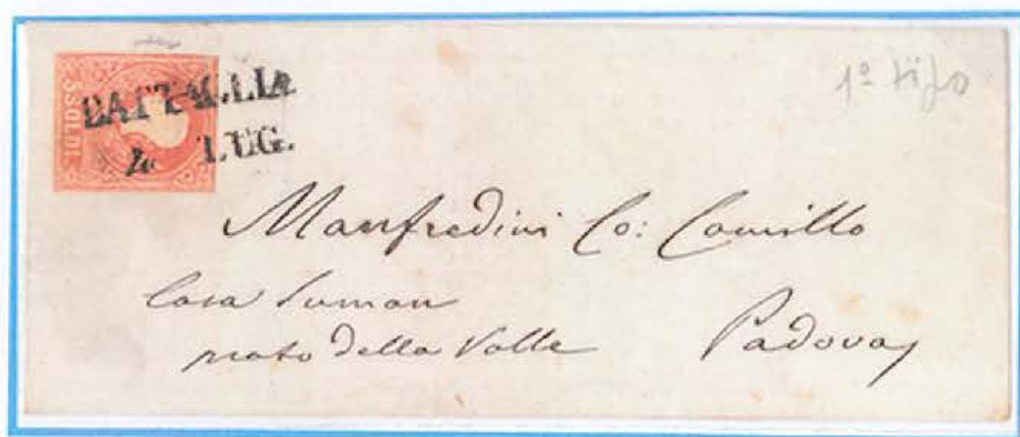 1º tipo
5 SOLDI
BATTAGLIA
4 LUG.
Manfredini Co: Camillo
Casa Suman
prato della Valle
Padova